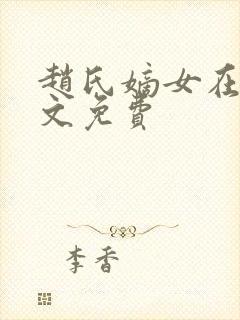 趙氏嫡女在
文免費
李香